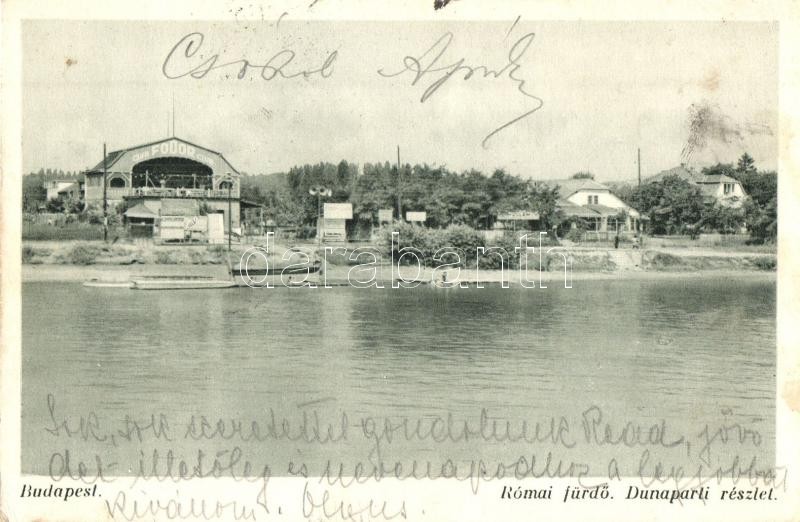 Csókol Apuk
FODOR
darabanth
Sok, sok szeretettel gondolunk Read, jövő
det illetőleg és nevenapodhoz a legjobbat
Kivánom.
Budapest.
Római fürdő. Dunaparti részlet.